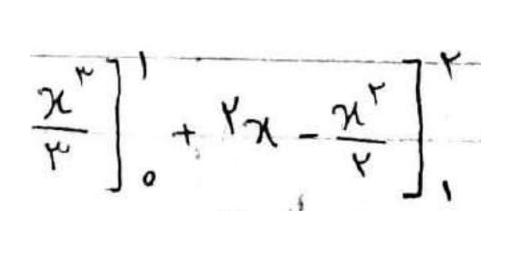 x^۳/۳ ]_۰^۱ + ۲x - x^۲/۲ ]_۱^۲